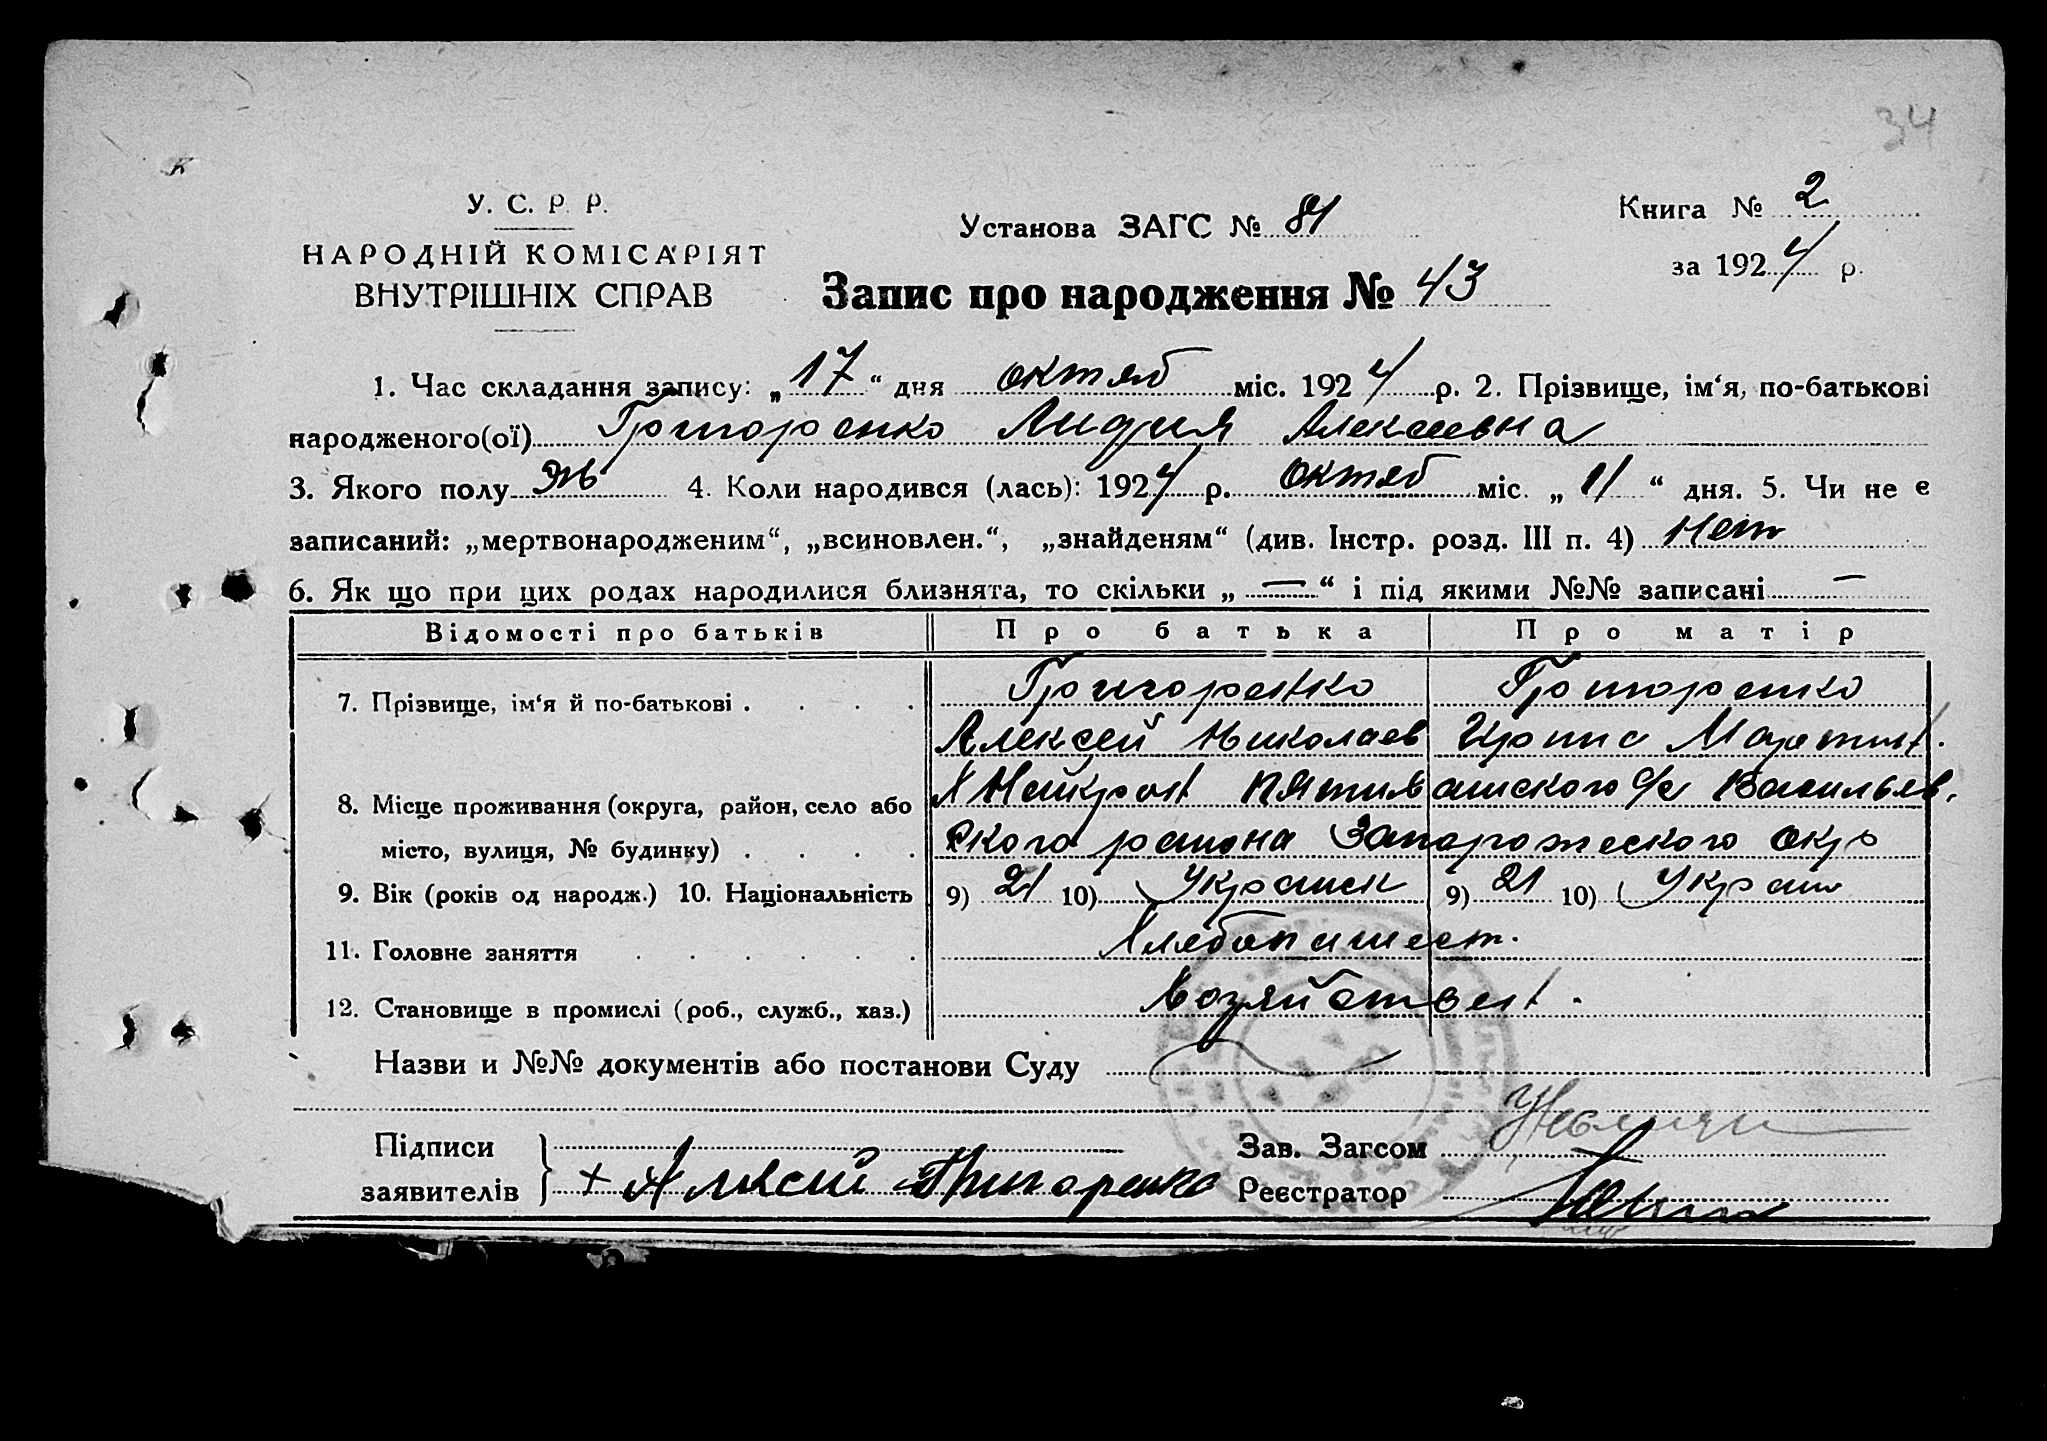 34
У. С. Р. Р.
НАРОДНІЙ КОМІСАРІЯТ
ВНУТРІШНІХ СПРАВ
Установа ЗАГС № 81
Книга № 2
за 1924 р.
Запис про народження № 43
1. Час складання запису: „17“ дня октяб міс. 1924 р. 2. Прізвище, ім‘я, по-батькові
народженого(ої) Григоренко Лидия Алексеевна
3. Якого полу Ж 4. Коли народився (лась): 1924 р. октяб міс. „11“ дня. 5. Чи не є
записаний: „мертвонародженим“, „всиновлен.“, „знайденям“ (див. Інстр. розд. III п. 4) Нет
6. Як що при цих родах народилися близнята, то скільки „—“ і під якими №№ записані —
Відомості про батьків Про батька Про матір
7. Прізвище, ім‘я й по-батькові Григоренко Григоренко
Алексей Николаев
8. Місце проживання (округа, район, село або Васильев.
місто, вулиця, № будинку) ского района Запорожского окр
9. Вік (років од народж.) 10. Національність 9) 21 10) Украинск 9) 21 10) Украин
11. Головне заняття Хлебопашест.
12. Становище в промислі (роб., служб., хаз.) Хозяйствен.
Назви и №№ документів або постанови Суду
Підписи Зав. Загсом
заявителів + Алексей Григоренко Реєстратор